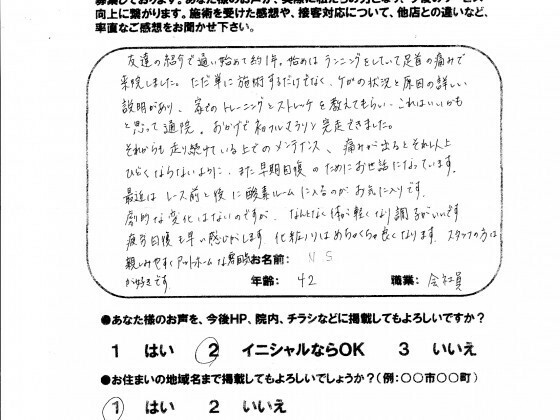 向上に繋がります。施術を受けた感想や、接客対応について、他店との違いなど、
率直なご感想をお聞かせ下さい。
友達の紹介で通い始めて約1年。始めはランニングをしていて足首の痛みで
来院しました。ただ単に施術するだけでなく、ケガの状況と原因の詳しい
説明があり、家でのトレーニングとストレッチを教えてもらい、これはいいかも
と思って通院。おかげで初フルマラソン完走できました。
それからも走り続けている上でのメンテナンス、痛みが出るとそれ以上
ひどくならないように、また早期回復のためにお世話になっています。
最近はレース前と後に酸素ルームに入るのがお気に入りです。
劇的な変化はないのですが、なんとなく体が軽くなり調子がいいです
疲労回復も早い感じがします。化粧ノリはめちゃくちゃ良くなります。スタッフの方は
親しみやすくアットホームな雰囲
が好きです。
お名前: N.S
年齢: 42 職業: 会社員
●あなた様のお声を、今後HP、院内、チラシなどに掲載してもよろしいですか?
1 はい 2 イニシャルならOK 3 いいえ
●お住まいの地域名まで掲載してもよろしいでしょうか?(例:〇〇市〇〇町)
1 はい 2 いいえ